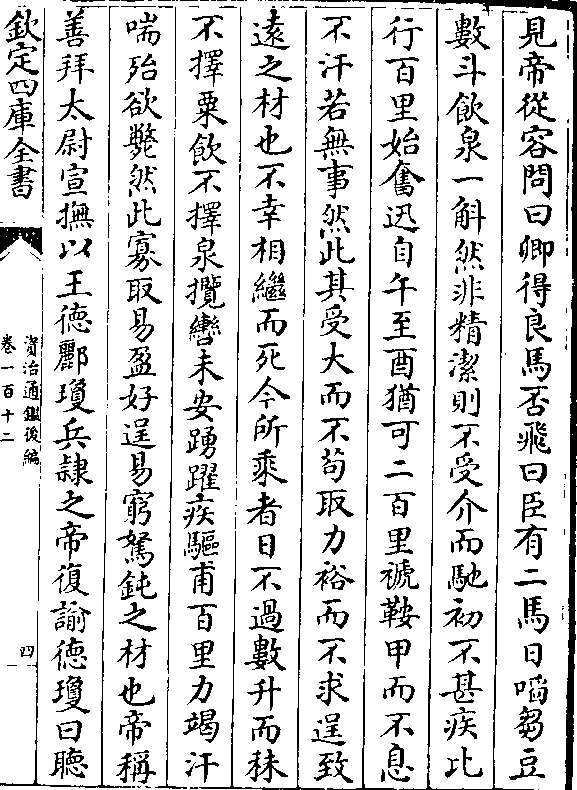 見帝從容問曰卿得良馬否飛曰臣有二馬日㗖芻豆
數斗飲泉一斛然非精潔則不受介而馳初不甚疾比
行百里始奮迅自午至酉猶可二百里褫鞍甲而不息
不汗若無事然此其受大而不茍取力裕而不求逞致
逺之材也不幸相繼而死今所乘者日不過數升而秣
不擇粟飲不擇泉攬轡未安踴躍疾驅甫百里力竭汗
喘殆欲斃然此寡取易盈好逞易窮駑鈍之材也帝稱
善拜太尉宣撫以王德酈瓊兵隷之帝復諭德瓊曰聽
欽定四庫全書
資治通鑑後編
卷一百十二
四